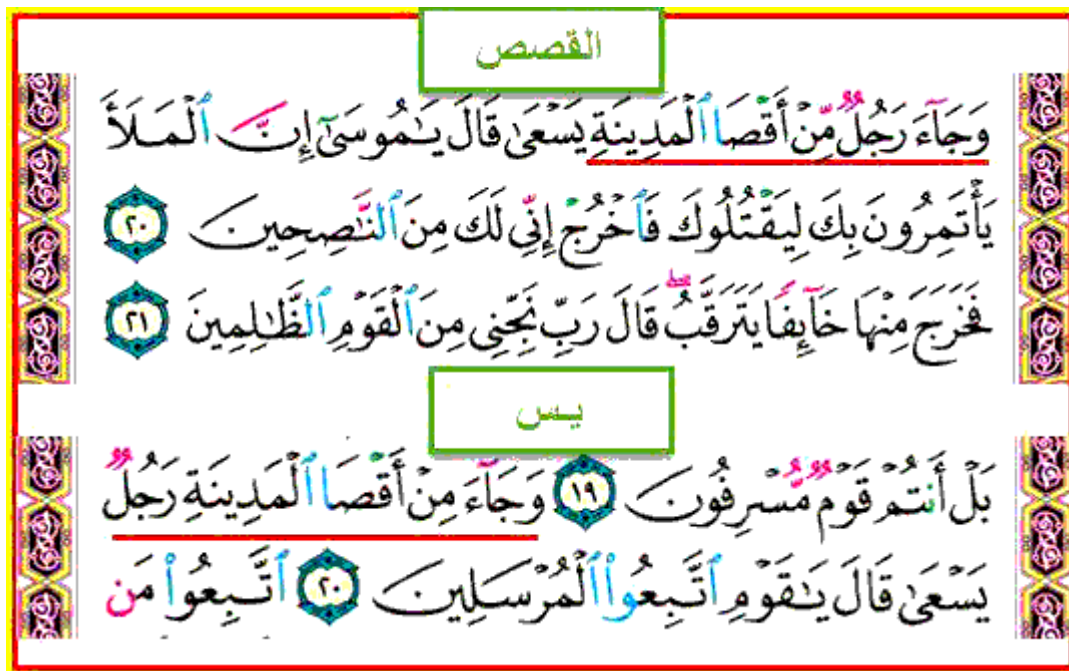 القصص
وَجَآءَ رَجُلٌ مِّنْ أَقْصَا ٱلْمَدِينَةِ يَسْعَىٰ قَالَ يَـٰمُوسَىٰٓ إِنَّ ٱلْمَلَأَ
يَأْتَمِرُونَ بِكَ لِيَقْتُلُوكَ فَٱخْرُجْ إِنِّى لَكَ مِنَ ٱلنَّـٰصِحِينَ ٢٠
فَخَرَجَ مِنْهَا خَآئِفًا يَتَرَقَّبُ ۖ قَالَ رَبِّ نَجِّنِى مِنَ ٱلْقَوْمِ ٱلظَّـٰلِمِينَ ٢١
يس
بَلْ أَنتُمْ قَوْمٌ مُّسْرِفُونَ ١٩ وَجَآءَ مِنْ أَقْصَا ٱلْمَدِينَةِ رَجُلٌ
يَسْعَىٰ قَالَ يَـٰقَوْمِ ٱتَّبِعُوا۟ ٱلْمُرْسَلِينَ ٢٠ ٱتَّبِعُوا۟ مَن